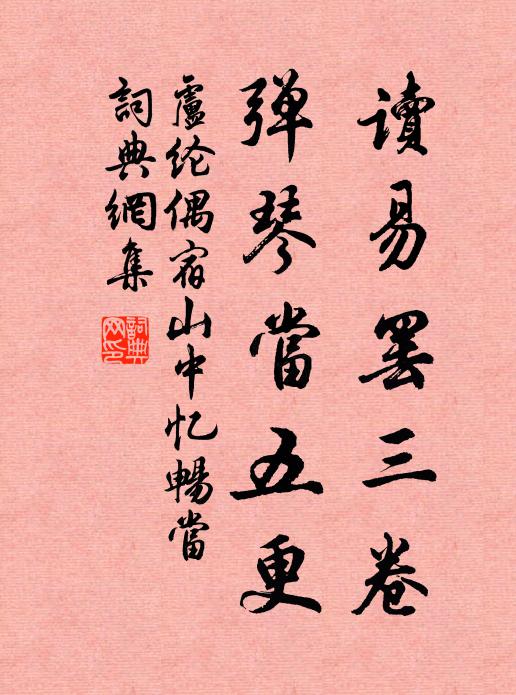 讀易罢三卷
弹琴當五更
盧纶偶宿山中忆暢當
詞典網集
詞典网印